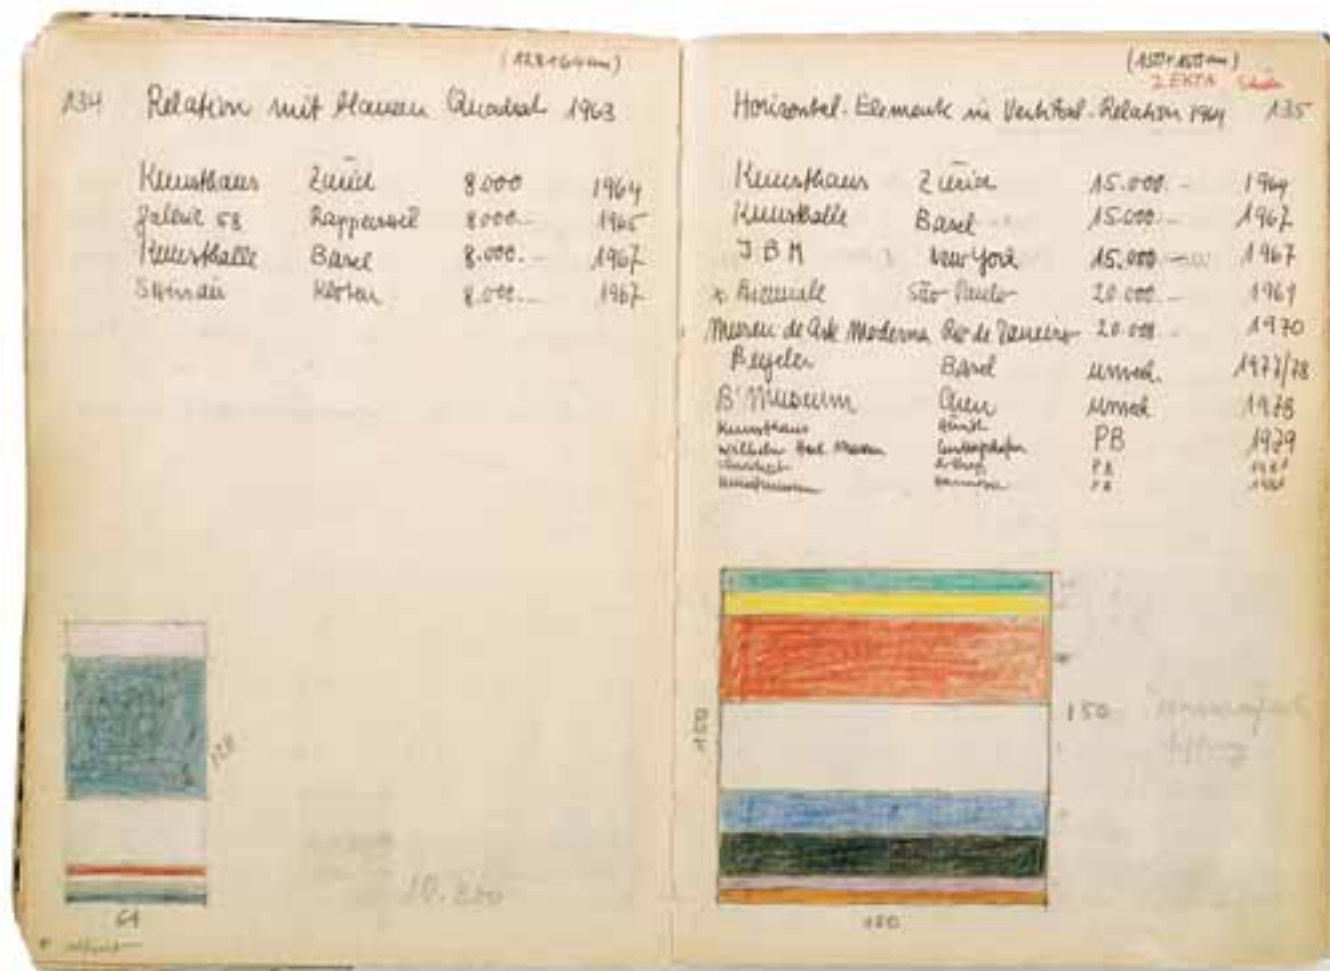 (128×64cm)
134 Relation mit blauem Quadrat 1963
Kunsthaus Zürich 8.000 1964
Galerie 58 Rapperswil 8.000.- 1965
Kunsthalle Basel 8.000.- 1967
Kloten 8.000.- 1967
128
64
10.200
(150×150cm)
2 EKTA
Horizontal-Elemente in Vertikal-Relation 1964 135
Kunsthaus Zürich 15.000.- 1964
Kunsthalle Basel 15.000.- 1967
IBM New York 15.000.- 1967
x Biennale São Paulo 20.000.- 1969
Museu de Arte Moderna Rio de Janeiro 20.000.- 1970
Beyeler Basel unverk. 1977/78
Museum unverk 1978
Kunsthaus Zürich PB 1979
Wilhelm Hack Museum Ludwigshafen
PB
Kunstmuseum Hannover PB
150
150
150